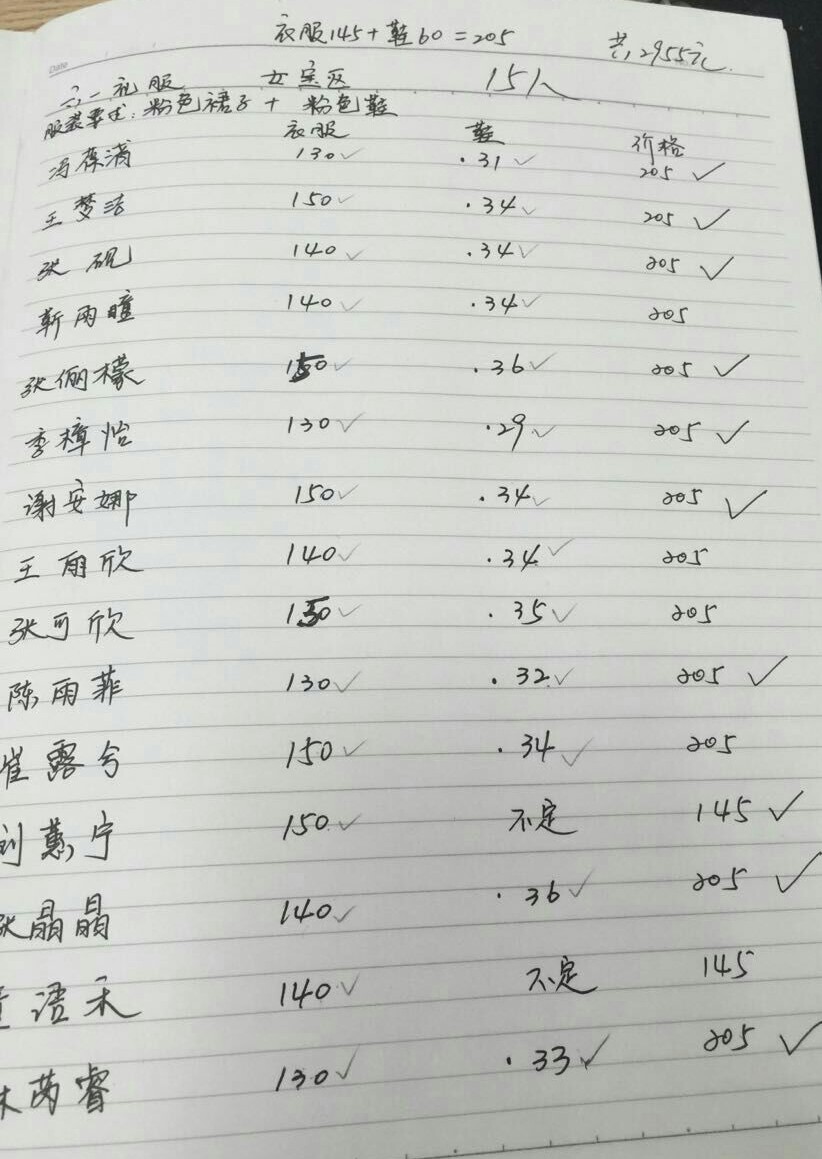 衣服145+鞋60=205
共,2955元
Date
六一礼服 女宝区 15人
服装要求:粉色裙子 + 粉色鞋
衣服 鞋 价格
冯葆漪 130✓ .31✓ 205 ✓
王梦洁 150✓ .34✓ 205 ✓
张砚 140✓ .34✓ 205 ✓
靳雨瞳 140✓ .34✓ 205
张俪檬 150✓ .36✓ 205 ✓
李樟怡 130✓ .29✓ 205 ✓
谢安娜 150✓ .34✓ 205 ✓
王雨欣 140✓ .34✓ 205
张可欣 150✓ .35✓ 205
陈雨菲 130✓ .32✓ 205 ✓
崔露兮 150✓ .34✓ 205
刘蕙宁 150✓ 不定 145 ✓
张晶晶 140✓ .36✓ 205 ✓
语禾 140✓ 不定 145
芮睿 130✓ .33✓ 205 ✓